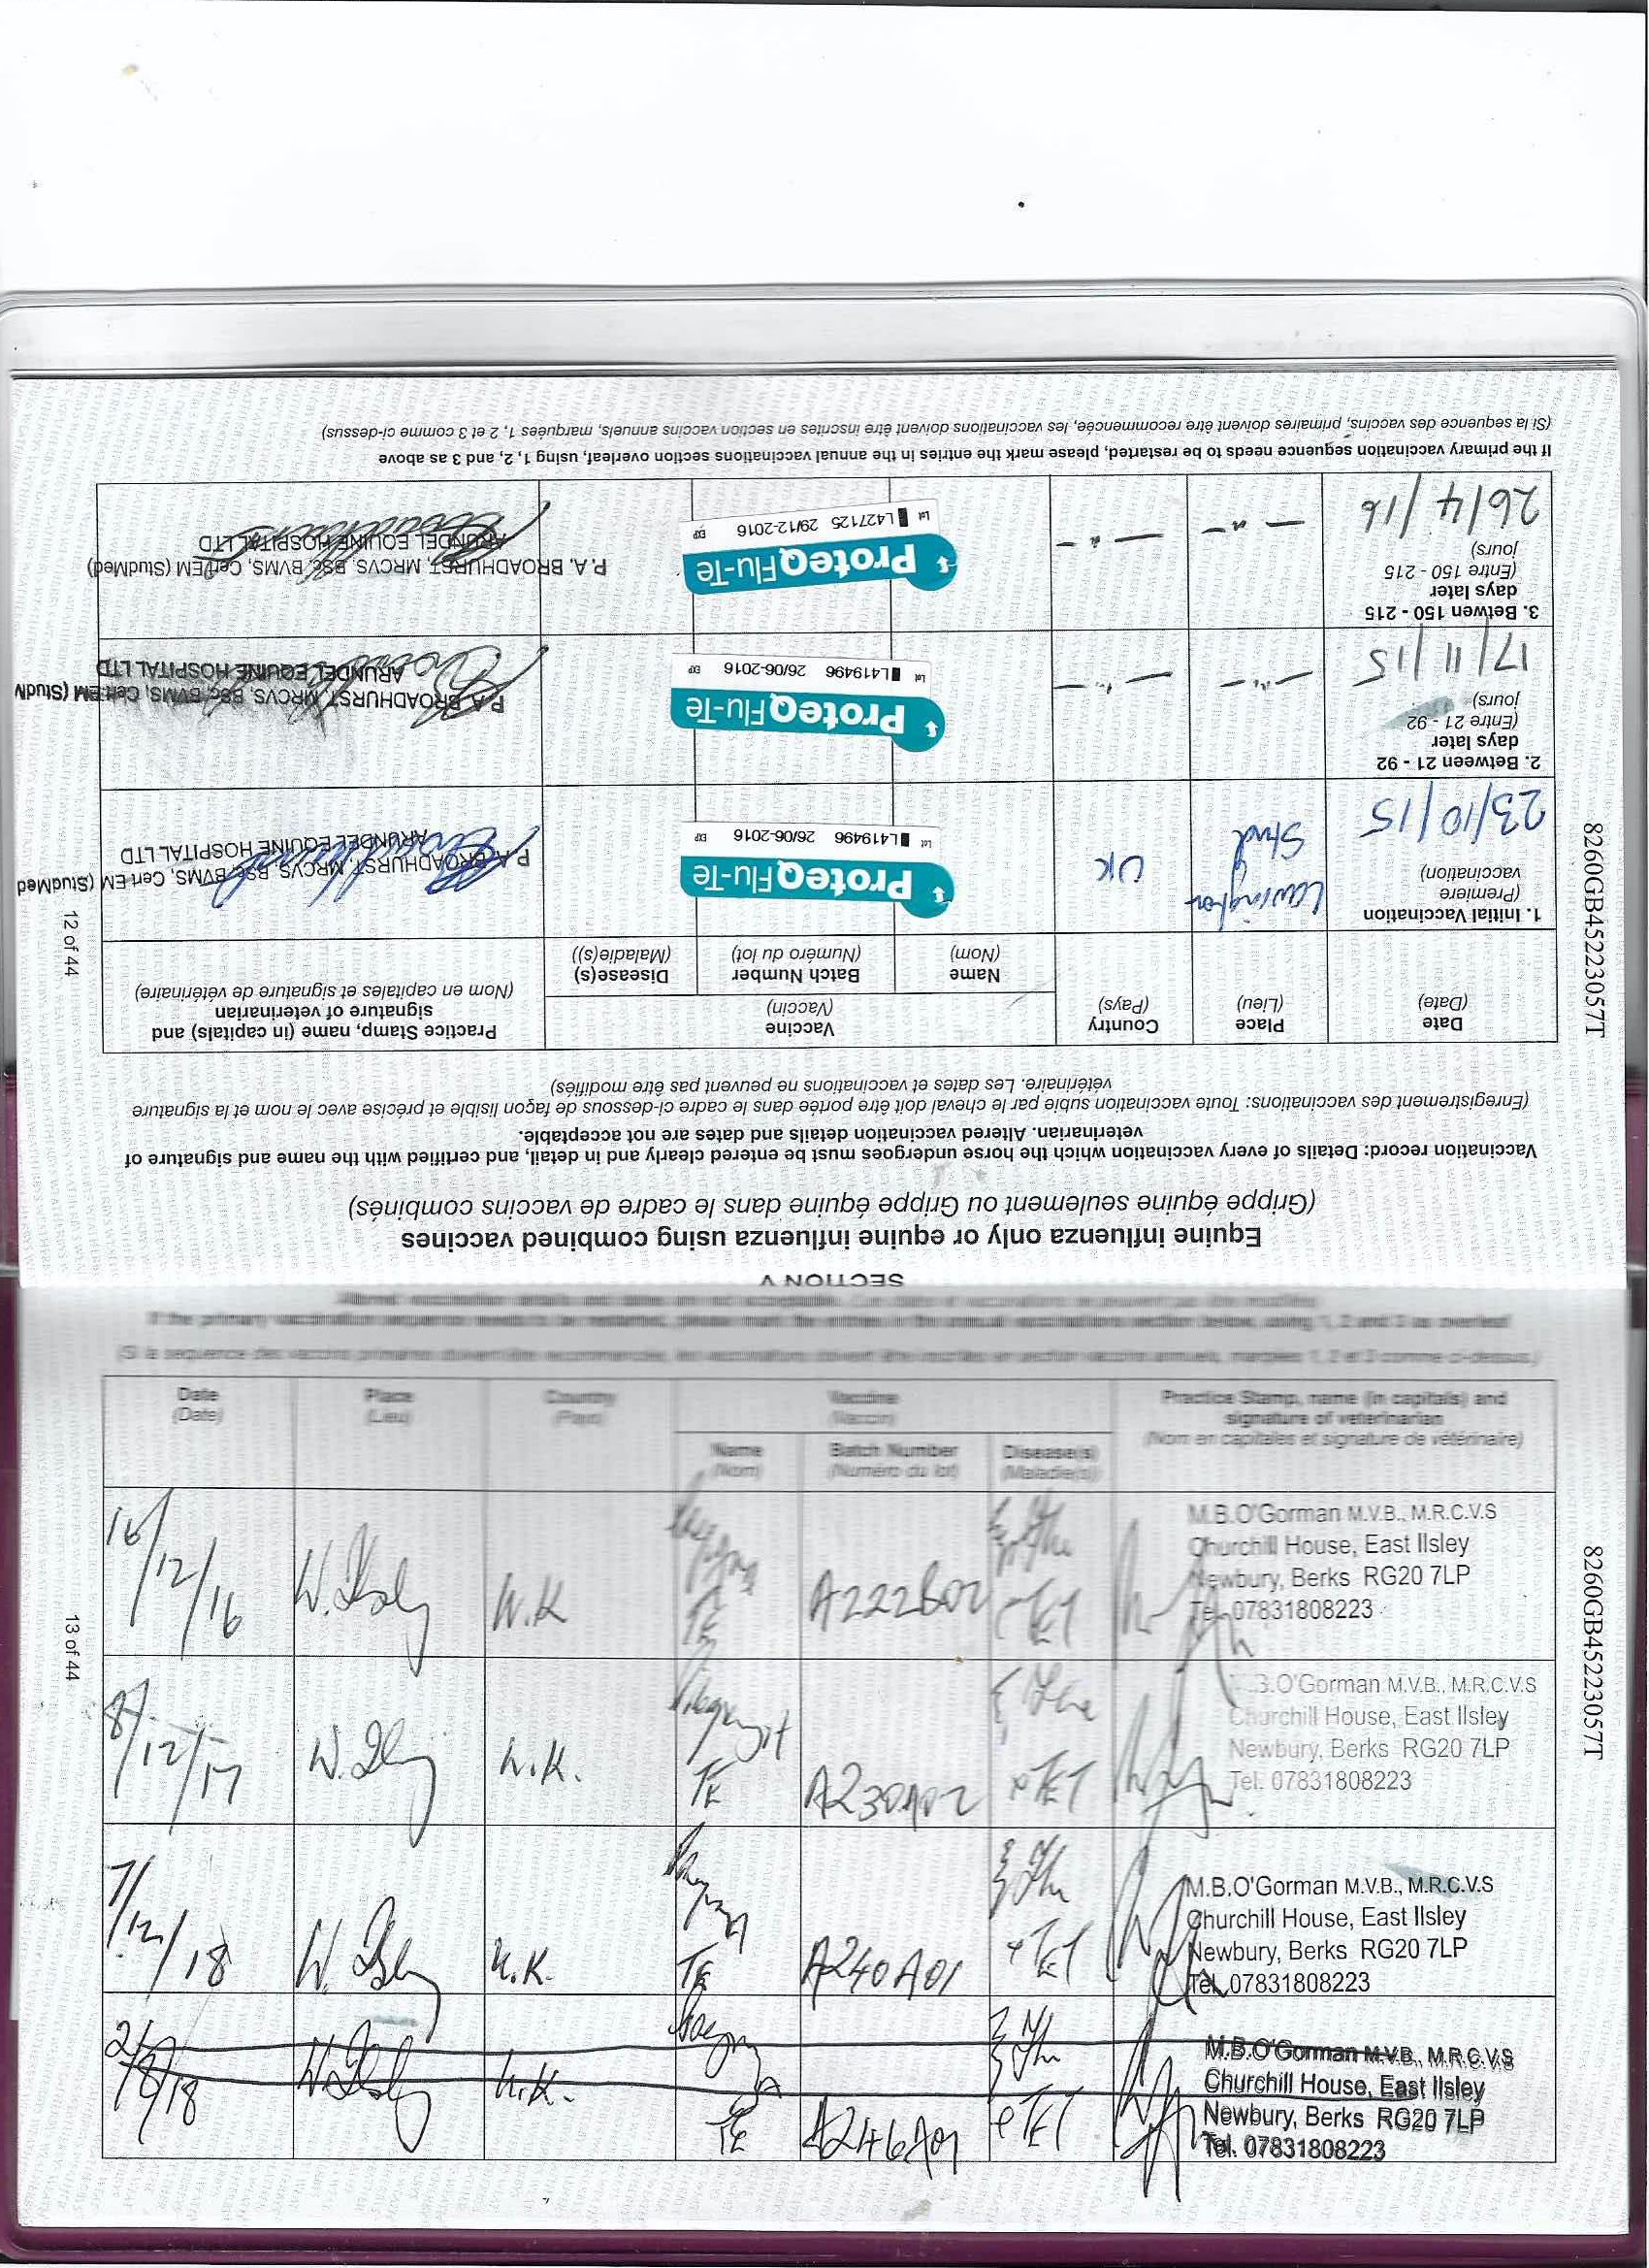 SECTION V
Equine influenza only or equine influenza using combined vaccines
(Grippe équine seulement ou Grippe équine dans le cadre de vaccins combinés)
Vaccination record: Details of every vaccination which the horse undergoes must be entered clearly and in detail, and certified with the name and signature of
veterinarian. Altered vaccination details and dates are not acceptable.
(Enregistrement des vaccinations: Toute vaccination subie par le cheval doit être portée dans le cadre ci-dessous de façon lisible et précise avec le nom et la signature
vétérinaire. Les dates et vaccinations ne peuvent pas être modifiés)
Date
(Date)
Place
(Lieu)
Country
(Pays)
Vaccine
(Vaccin)
Name
(Nom)
Batch Number
(Numèro du lot)
Disease(s)
(Maladie(s))
Practice Stamp, name (in capitals) and
signature of veterinarian
(Nom en capitales et signature de vétérinaire)
1. Initial Vaccination
(Premiere
vaccination)
23/10/15
Stud
UK
ProteqFlu-Te
Lot L419496 26/06-2016 EXP
P.A. BROADHURST, MRCVS, BSc, BVMS, Cert EM (StudMed
ARUNDEL EQUINE HOSPITAL LTD
2. Between 21 - 92
days later
(Entre 21 - 92
jours)
17/11/15
— " —
— " —
ProteqFlu-Te
Lot L419496 26/06-2016 EXP
P.A. BROADHURST, MRCVS, BSc, BVMS, Cert EM (StudM
ARUNDEL EQUINE HOSPITAL LTD
3. Betwen 150 - 215
days later
(Entre 150 - 215
jours)
26/4/16
— " —
— " —
ProteqFlu-Te
Lot L427125 29/12-2016 EXP
P.A. BROADHURST, MRCVS, BSc, BVMS, Cert EM (StudMed)
ARUNDEL EQUINE HOSPITAL LTD
If the primary vaccination sequence needs to be restarted, please mark the entries in the annual vaccinations section overleaf, using 1, 2, and 3 as above
(Si la sequence des vaccins, primaires doivent être recommencée, les vaccinations doivent être inscrites en section vaccins annuels, marquées 1, 2 et 3 comme ci-dessus)
8260GB45223057T
12 of 44
If the primary vaccination sequence needs to be restarted, please mark the entries in the annual vaccinations section below, using 1, 2 and 3 as overleaf
Date
(Date)
Place
(Lieu)
Country
(Pays)
Vaccine
(Vaccin)
Name
(Nom)
Batch Number
(Numéro du lot)
Disease(s)
(Maladie(s))
Practice Stamp, name (in capitals) and
signature of veterinarian
(Nom en capitales et signature de vétérinaire)
16/12/16
W. Ilsley
U.K
TE
A222B02
E Flu
+ TET
M.B.O'Gorman M.V.B., M.R.C.V.S
Churchill House, East Ilsley
Newbury, Berks RG20 7LP
Tel. 07831808223
8/12/17
W. Ilsley
U.K.
TE
A230A02
E Flu
+ TET
B.O'Gorman M.V.B., M.R.C.V.S
Churchill House, East Ilsley
Newbury, Berks RG20 7LP
Tel. 07831808223
7/12/18
W. Ilsley
U.K.
TE
A240A01
E Flu
+ TET
M.B.O'Gorman M.V.B., M.R.C.V.S
Churchill House, East Ilsley
Newbury, Berks RG20 7LP
Tel. 07831808223
W. Ilsley
U.K.
TE
A246A01
E Flu
+ TET
M.B.O'Gorman M.V.B., M.R.C.V.S
Churchill House, East Ilsley
Newbury, Berks RG20 7LP
Tel. 07831808223
8260GB45223057T
13 of 44